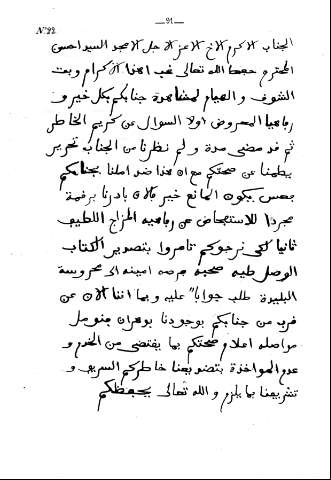 — 21 —
N° 22.
الجناب الاكرم الاخ الاعز الاجل الامجد السيد احسن
المحترم حفظه الله تعالى غب اهداء الاكرام وبث
الشوق والهيام لمشاهدة جنابكم بكل خير و
رفاهية المعروض اولا السوال عن كريم الخاطر
ثم قد مضى مدة ولم نظرنا من الجناب تحرير
يطمنا عن صحتكم مع ان هذا ضد املنا بجنابكم
يكون المانع خير فالان بادرنا برقمه
مجردا للاستفحاص عن رفاهية المزاج اللطيف
ثانيا لكي نرجوكم تامروا بتصدير الكتاب
الوصل طيه صحبة امينه الى محروسة
البليدة طلب جوابا عليه وبما اننا الان عن
قرب من جنابكم بوجودنا بوهران
مواصلة اعلام صحتكم بما يقتضى من الخدم و
عدم المواخذة بتصديعنا خاطركم السريم و
تشريفنا بما يلزم والله تعالى يحفظكم